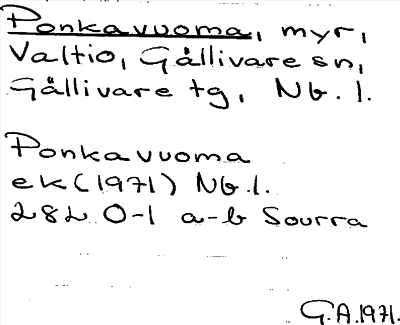 Ponkavuoma, myr,
Valtio, Gällivare sn,
Gällivare tg, Nb. l.
Ponkavuoma
ek (1971) Nb. l.
28L 0-1 a-b Sourra
G.A. 1971.